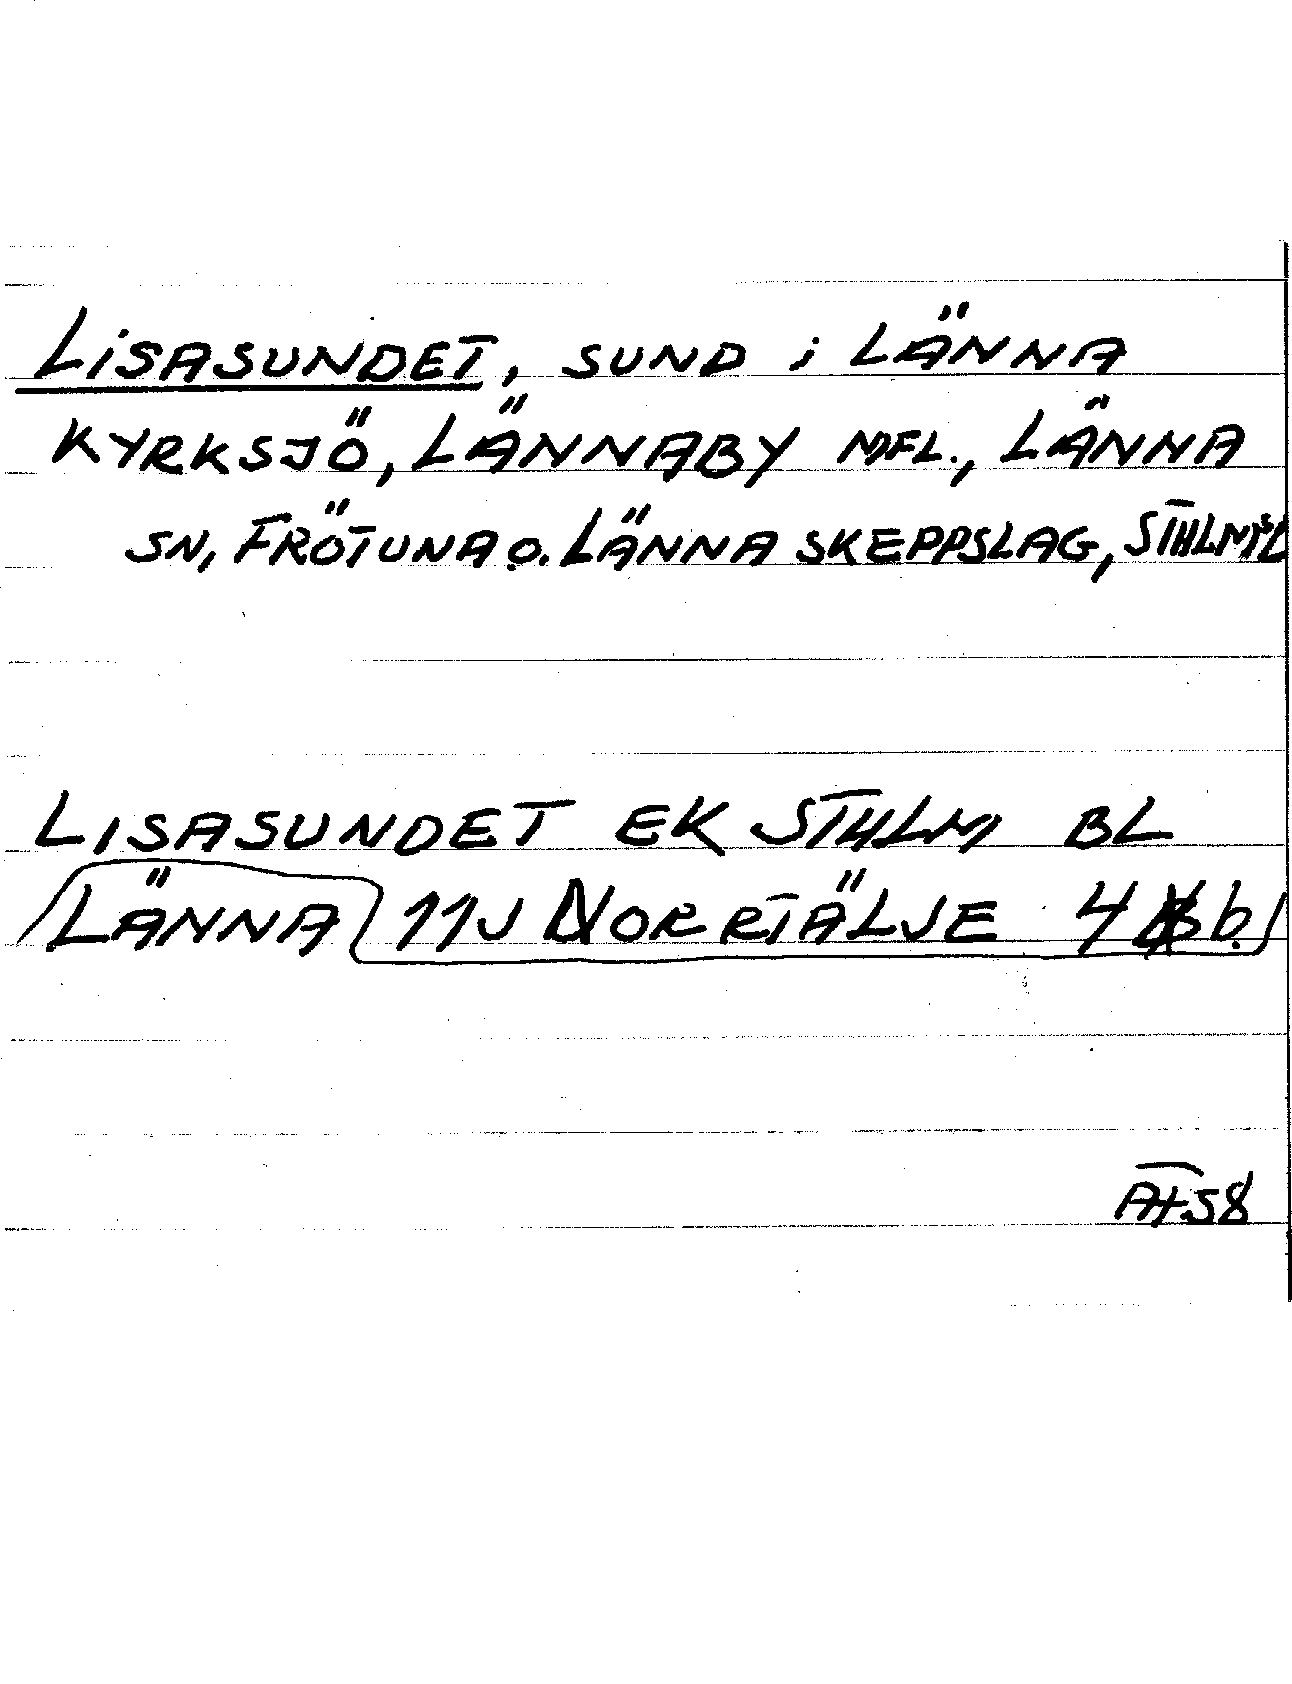 LISASUNDET, SUND i LÄNNA
KYRKSJÖ, LÄNNABY MFL., LÄNNA
SN, FRÖTUNA O. LÄNNA SKEPPSLAG, STHLMS L
LISASUNDET EK STHLM BL
LÄNNA 11J NORRTÄLJE 4 b.